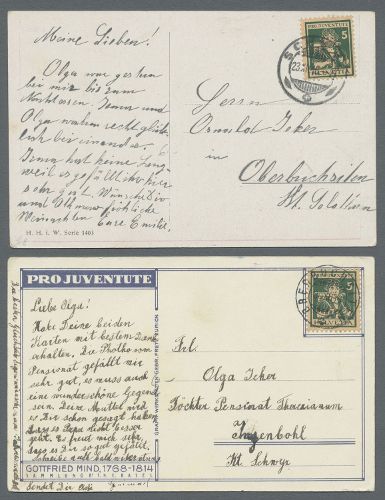 Meine Lieben!
Olga war gestern
bei mir bis zum
Nachtessen. Irma und
Olga waren recht glück-
lich bei einander.
Irma hat keine Lang-
weil es gefällt ihr hier
sehr gut. Wünsche Dir
und Othmar fröhliche
Weinachten Eure Emilie.
H. H. i. W. Serie 1401
PRO JUVENTUTE
5
HELVETIA
23.
Herrn
Oswald Jeker
in
Oberbuchsiten
Kt. Solothurn
PRO JUVENTUTE
Liebe Olga!
Habe Deine beiden
Karten mit bestem Dank
erhalten. Die Photho vom
Pensionat gefällt mir
sehr gut, es muss auch
eine wunderschöne Gegend
sein. Deine Mutter wird
es Dir schon gesagt haben,
dass es Papa nicht besser
geht. Es freut mich sehr,
dass es Dir so gut gefällt.
Schreibe auch bald wieder
GOTTFRIED MIND, 1768-1814
sendet Dir
5
Frl.
Olga Jeker
Töchter Pensionat Theresianum
Ingenbohl
Kt. Schwyz